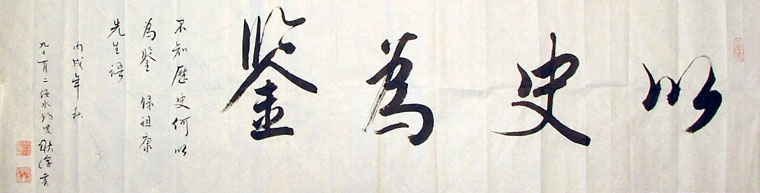 以史為鑒
不知歷史何以
為鑒 錄祖康
先生語
丙戌年秋
九十有二